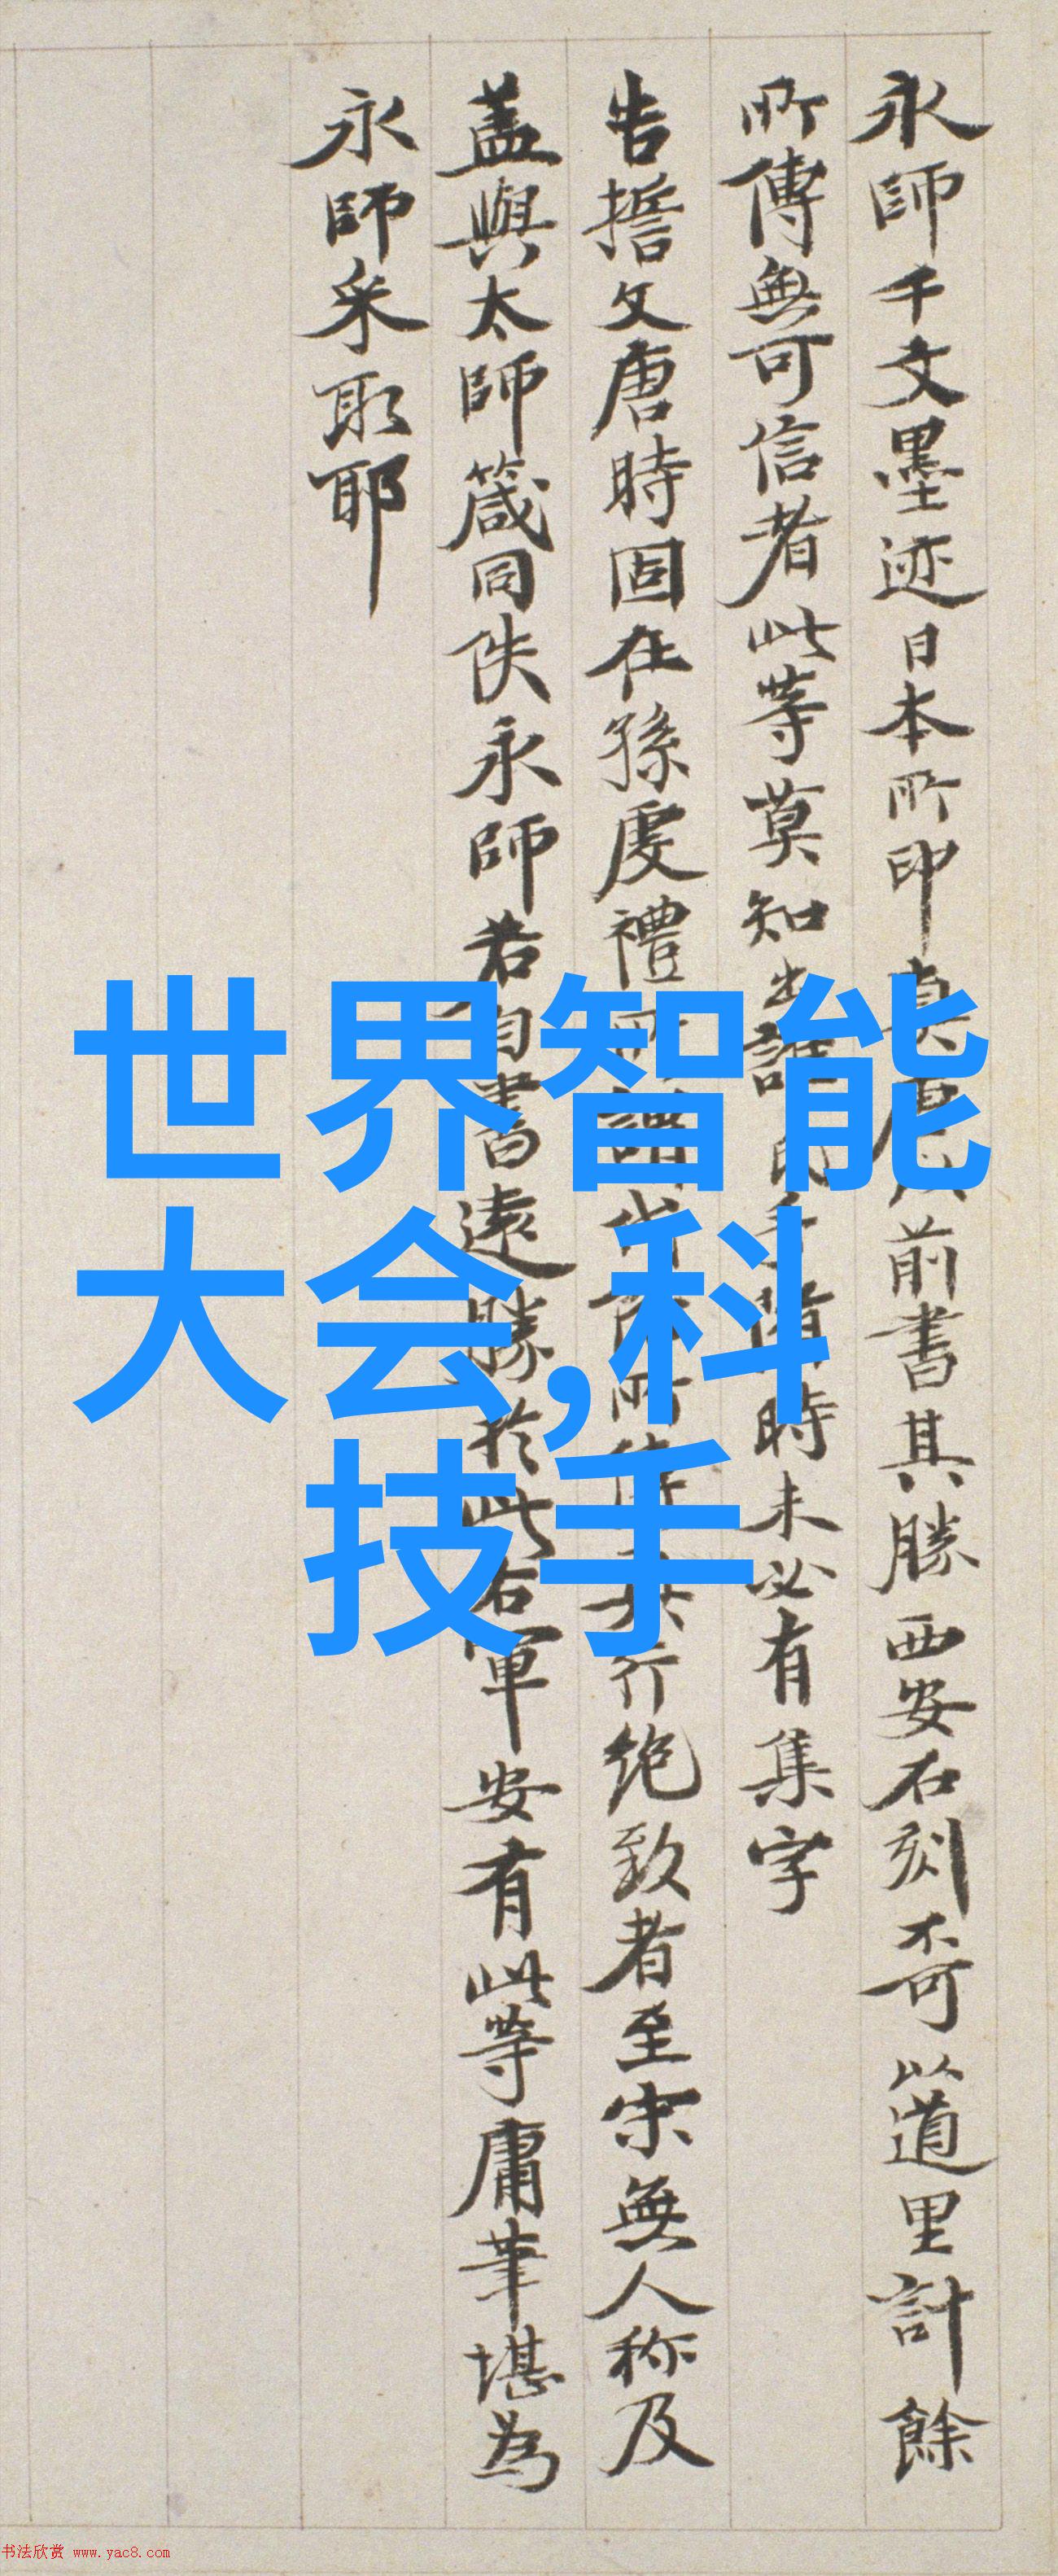 永師千文墨迹日本所印真唐以前書其勝西安石刻奇以道里計餘
所傳無可信者此等莫知出誰氏手隋時未必有集字
告擔文唐時固在孫虔禮所行絶致者至宋無人称及
盖與太師箴同佚永師若自書遠勝於此右軍安有此等庸筆堪為
永師采取耶
世界智能
大会,科
技手
书法欣赏 www.yac8.com